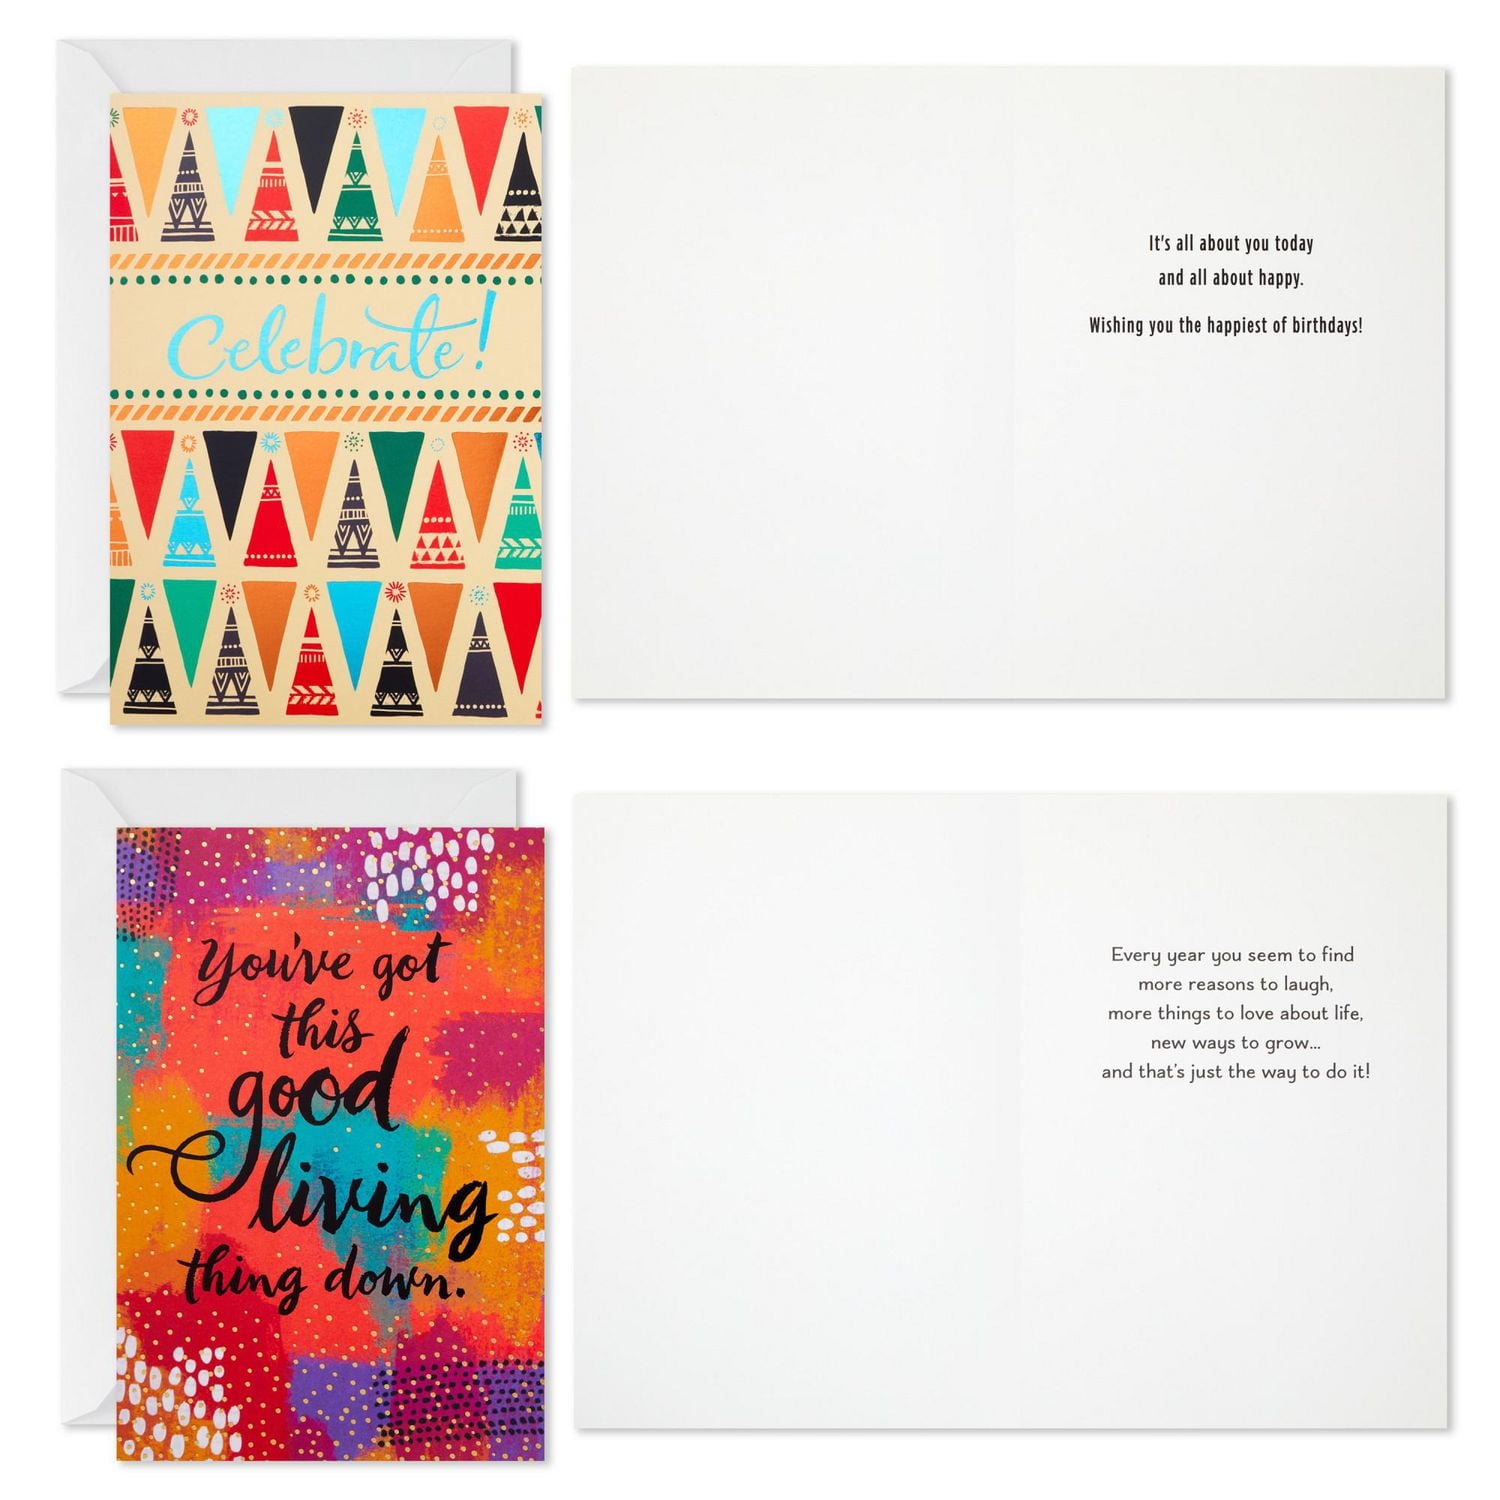 Celebrate!
It's all about you today
and all about happy.
Wishing you the happiest of birthdays!
You've got
this
good
living
thing down.
Every year you seem to find
more reasons to laugh,
more things to love about life,
new ways to grow...
and that's just the way to do it!